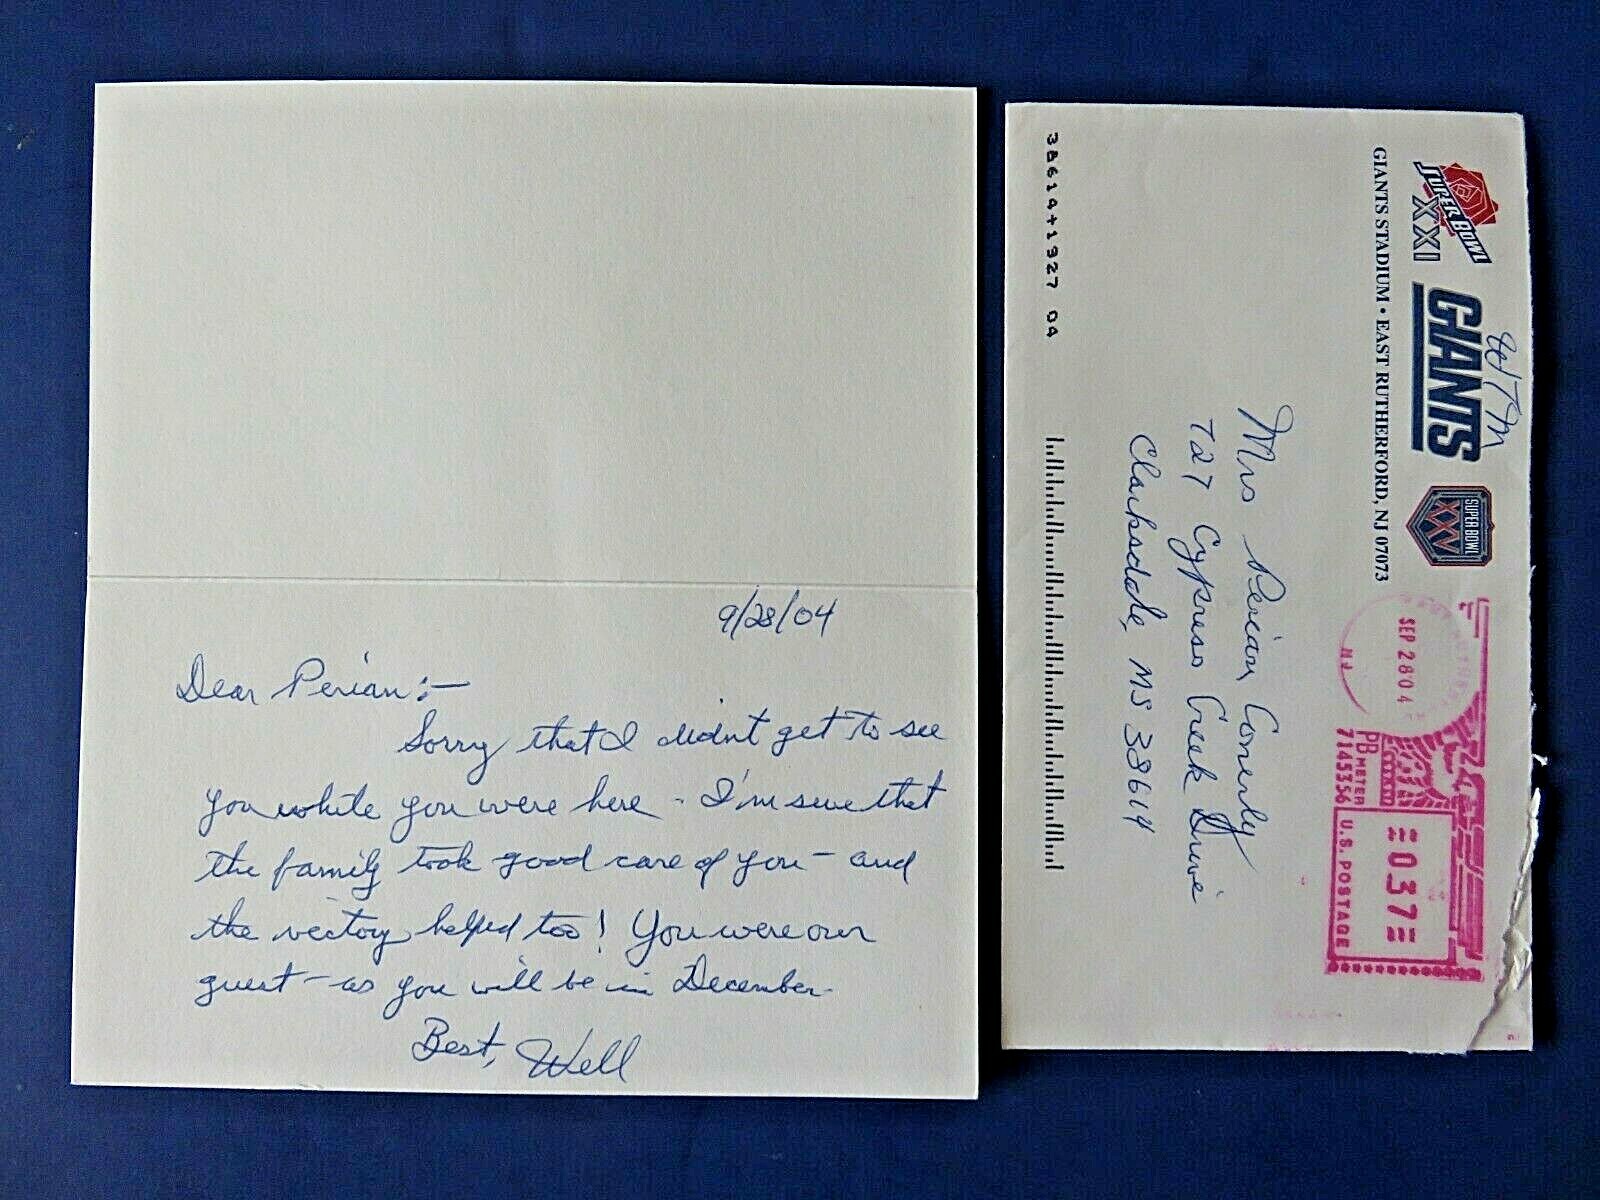 9/28/04
Dear Perian:—
Sorry that I didn't get to see
you while you were here - I'm sure that
the family took good care of you — and
the victory helped too! You were our
guest — as you will be in December.
Best, Well
SUPER BOWL
XXI
GIANTS
WTM
SUPER BOWL
XXV
GIANTS STADIUM • EAST RUTHERFORD, NJ 07073
SEP 28 04
NJ
PB METER
7145356 U.S. POSTAGE
037
Mrs Perian Conerly
727 Cypress Creek Drive
Clarksdale, MS 38614
38614+1927 04